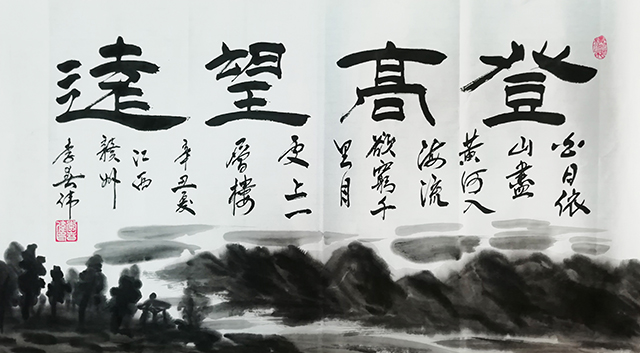 登高望遠
白日依
山盡
黄河入
海流
欲窮千
里目
更上一
層樓
辛丑夏
江西
贛州
李伟